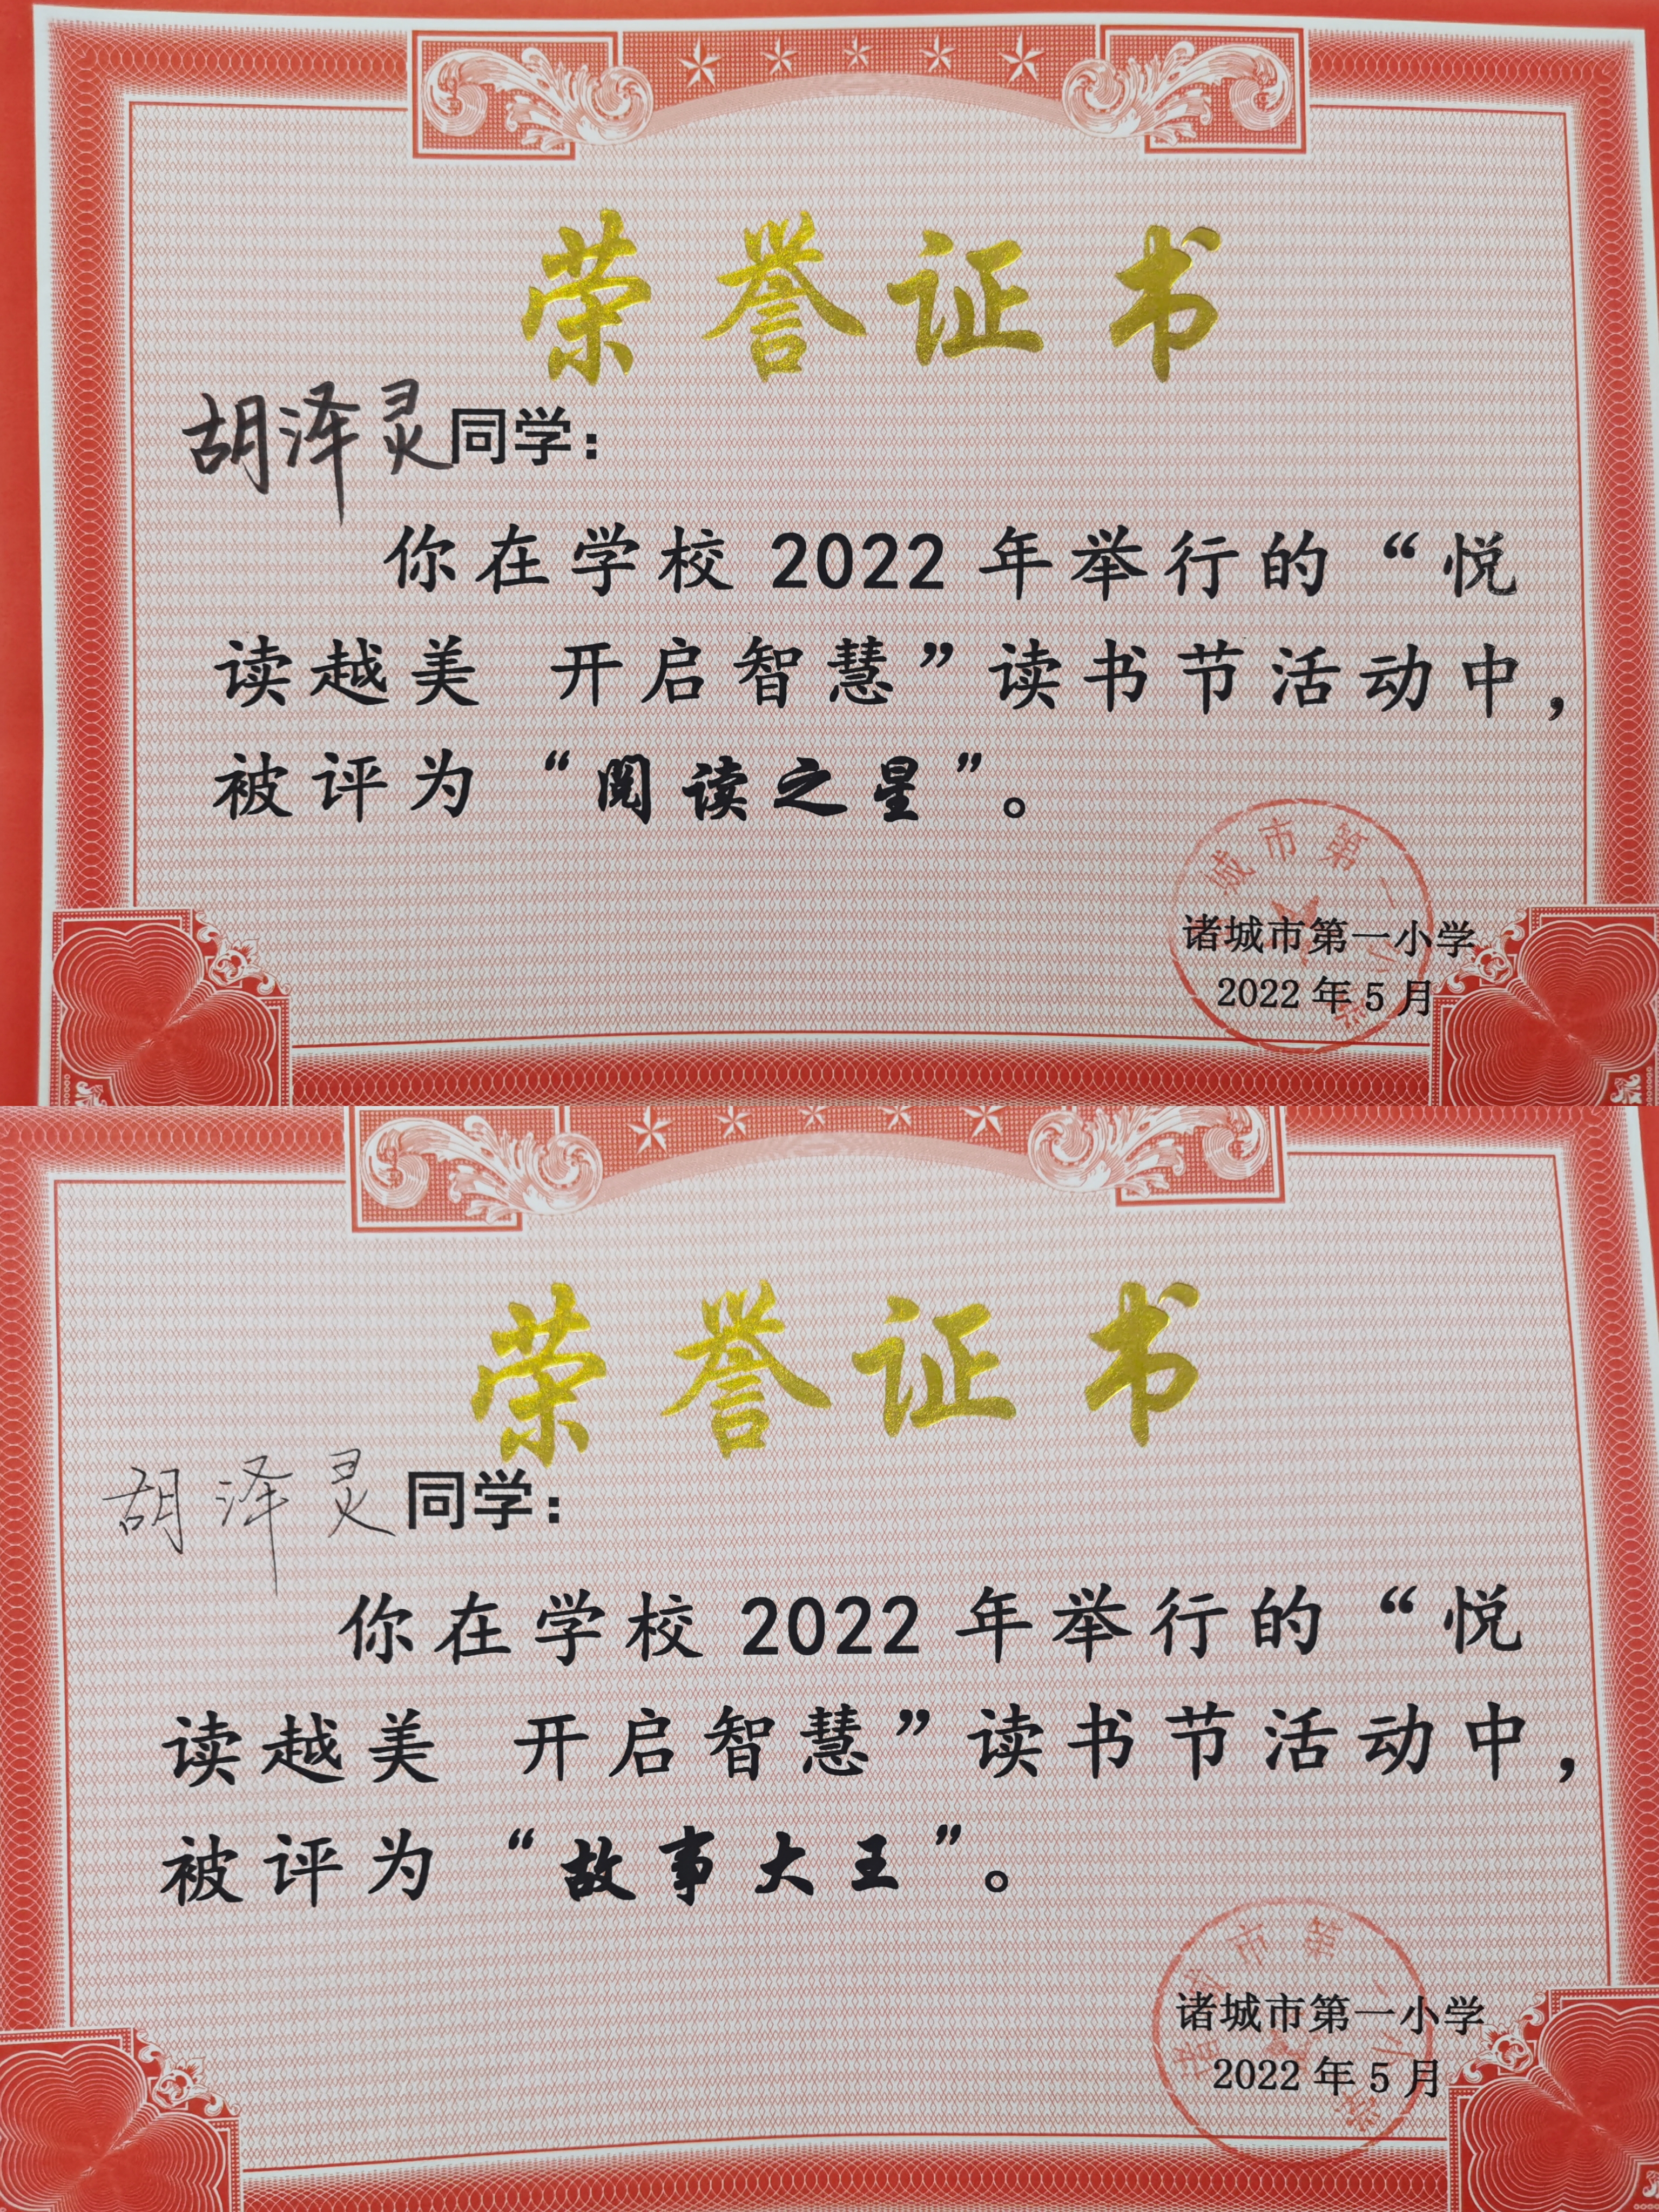 荣誉证书
胡泽灵同学：
你在学校 2022 年举行的“悦
读越美 开启智慧”读书节活动中，
被评为“阅读之星”。
城市第一
诸城市第一小学
2022 年 5 月
荣誉证书
胡泽灵同学：
你在学校 2022 年举行的“悦
读越美 开启智慧”读书节活动中，
被评为“故事大王”。
诸城市第一小学
诸城市第一小学
2022 年 5 月